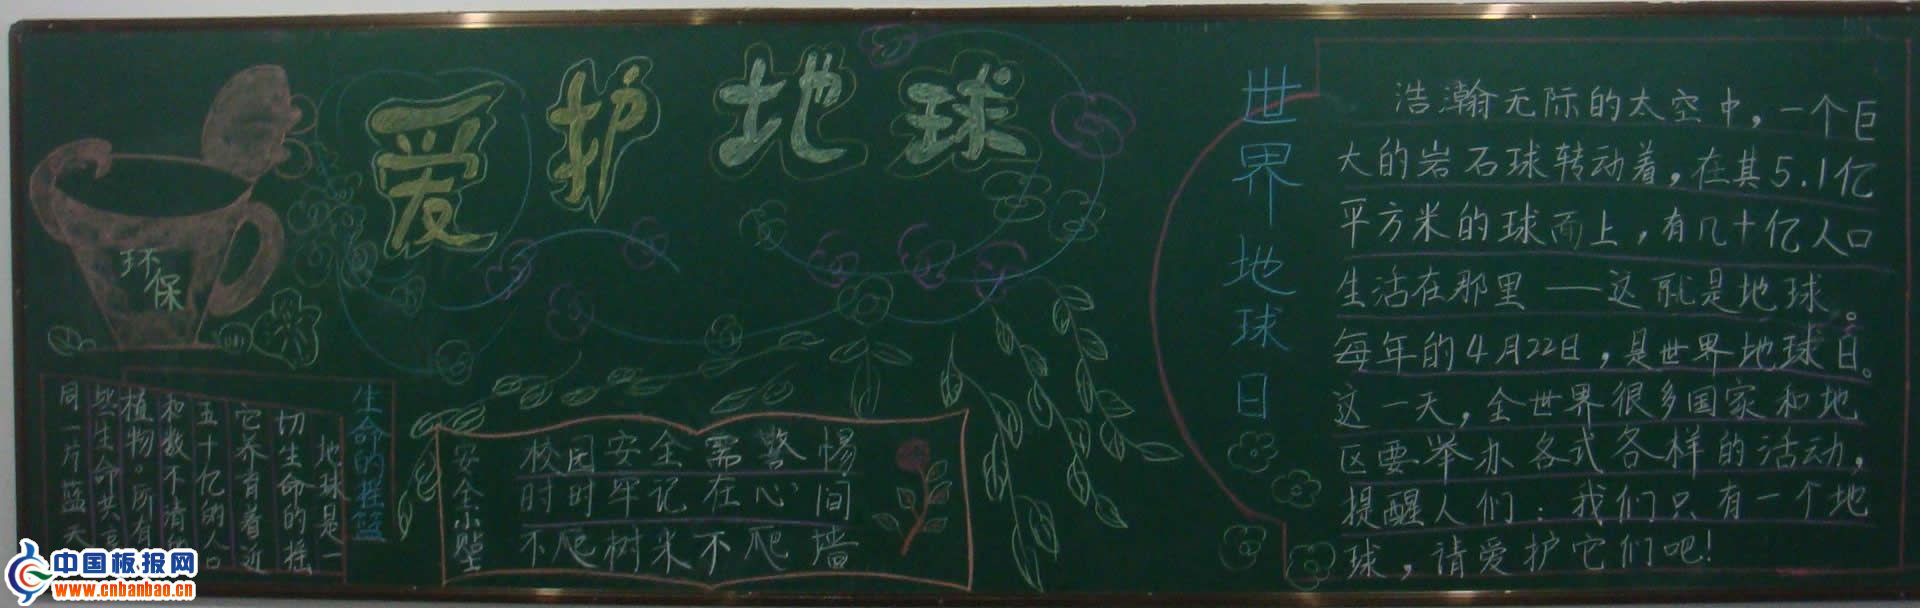 爱护地球
环
保
生命的摇篮
地球是一
切生命的摇
它养育着近
五十亿的人口
和数不清的
植物。所有
些生命共享
同一片蓝天
安全小贴士
校园安全需警惕
时时牢记在心间
不爬树米不爬墙
世界地球日
浩瀚无际的太空中，一个巨
大的岩石球转动着，在其5.1亿
平方米的球面上，有几十亿人口
生活在那里——这就是地球。
每年的4月22日，是世界地球日。
这一天，全世界很多国家和地
区要举办各式各样的活动，
提醒人们：我们只有一个地
球，请爱护它们吧！
中国板报网
www.cnbanbao.cn